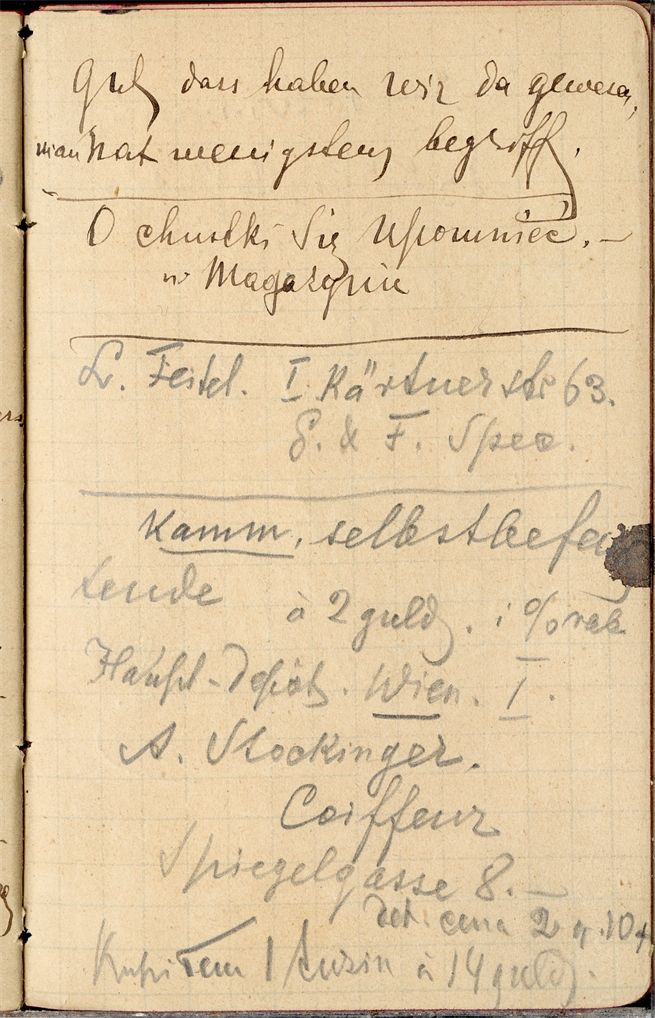 Gut dass haben wir da gewesen,
man hat wenigstens begriff.
O chustki Się upomnieć. –
w Magazynie
L. Feitel. I. Kärtnerstr 63.
E. & F. Spec.
Kamm, selbstbefeu
tende à 2 guld. i % rab
Haupt-Depôt. Wien. I.
A. Stockinger.
Coiffeur
Spiegelgasse 8. –
Det. cena 2 g. 10
Kupiłem 1 tuzin à 14 guld.